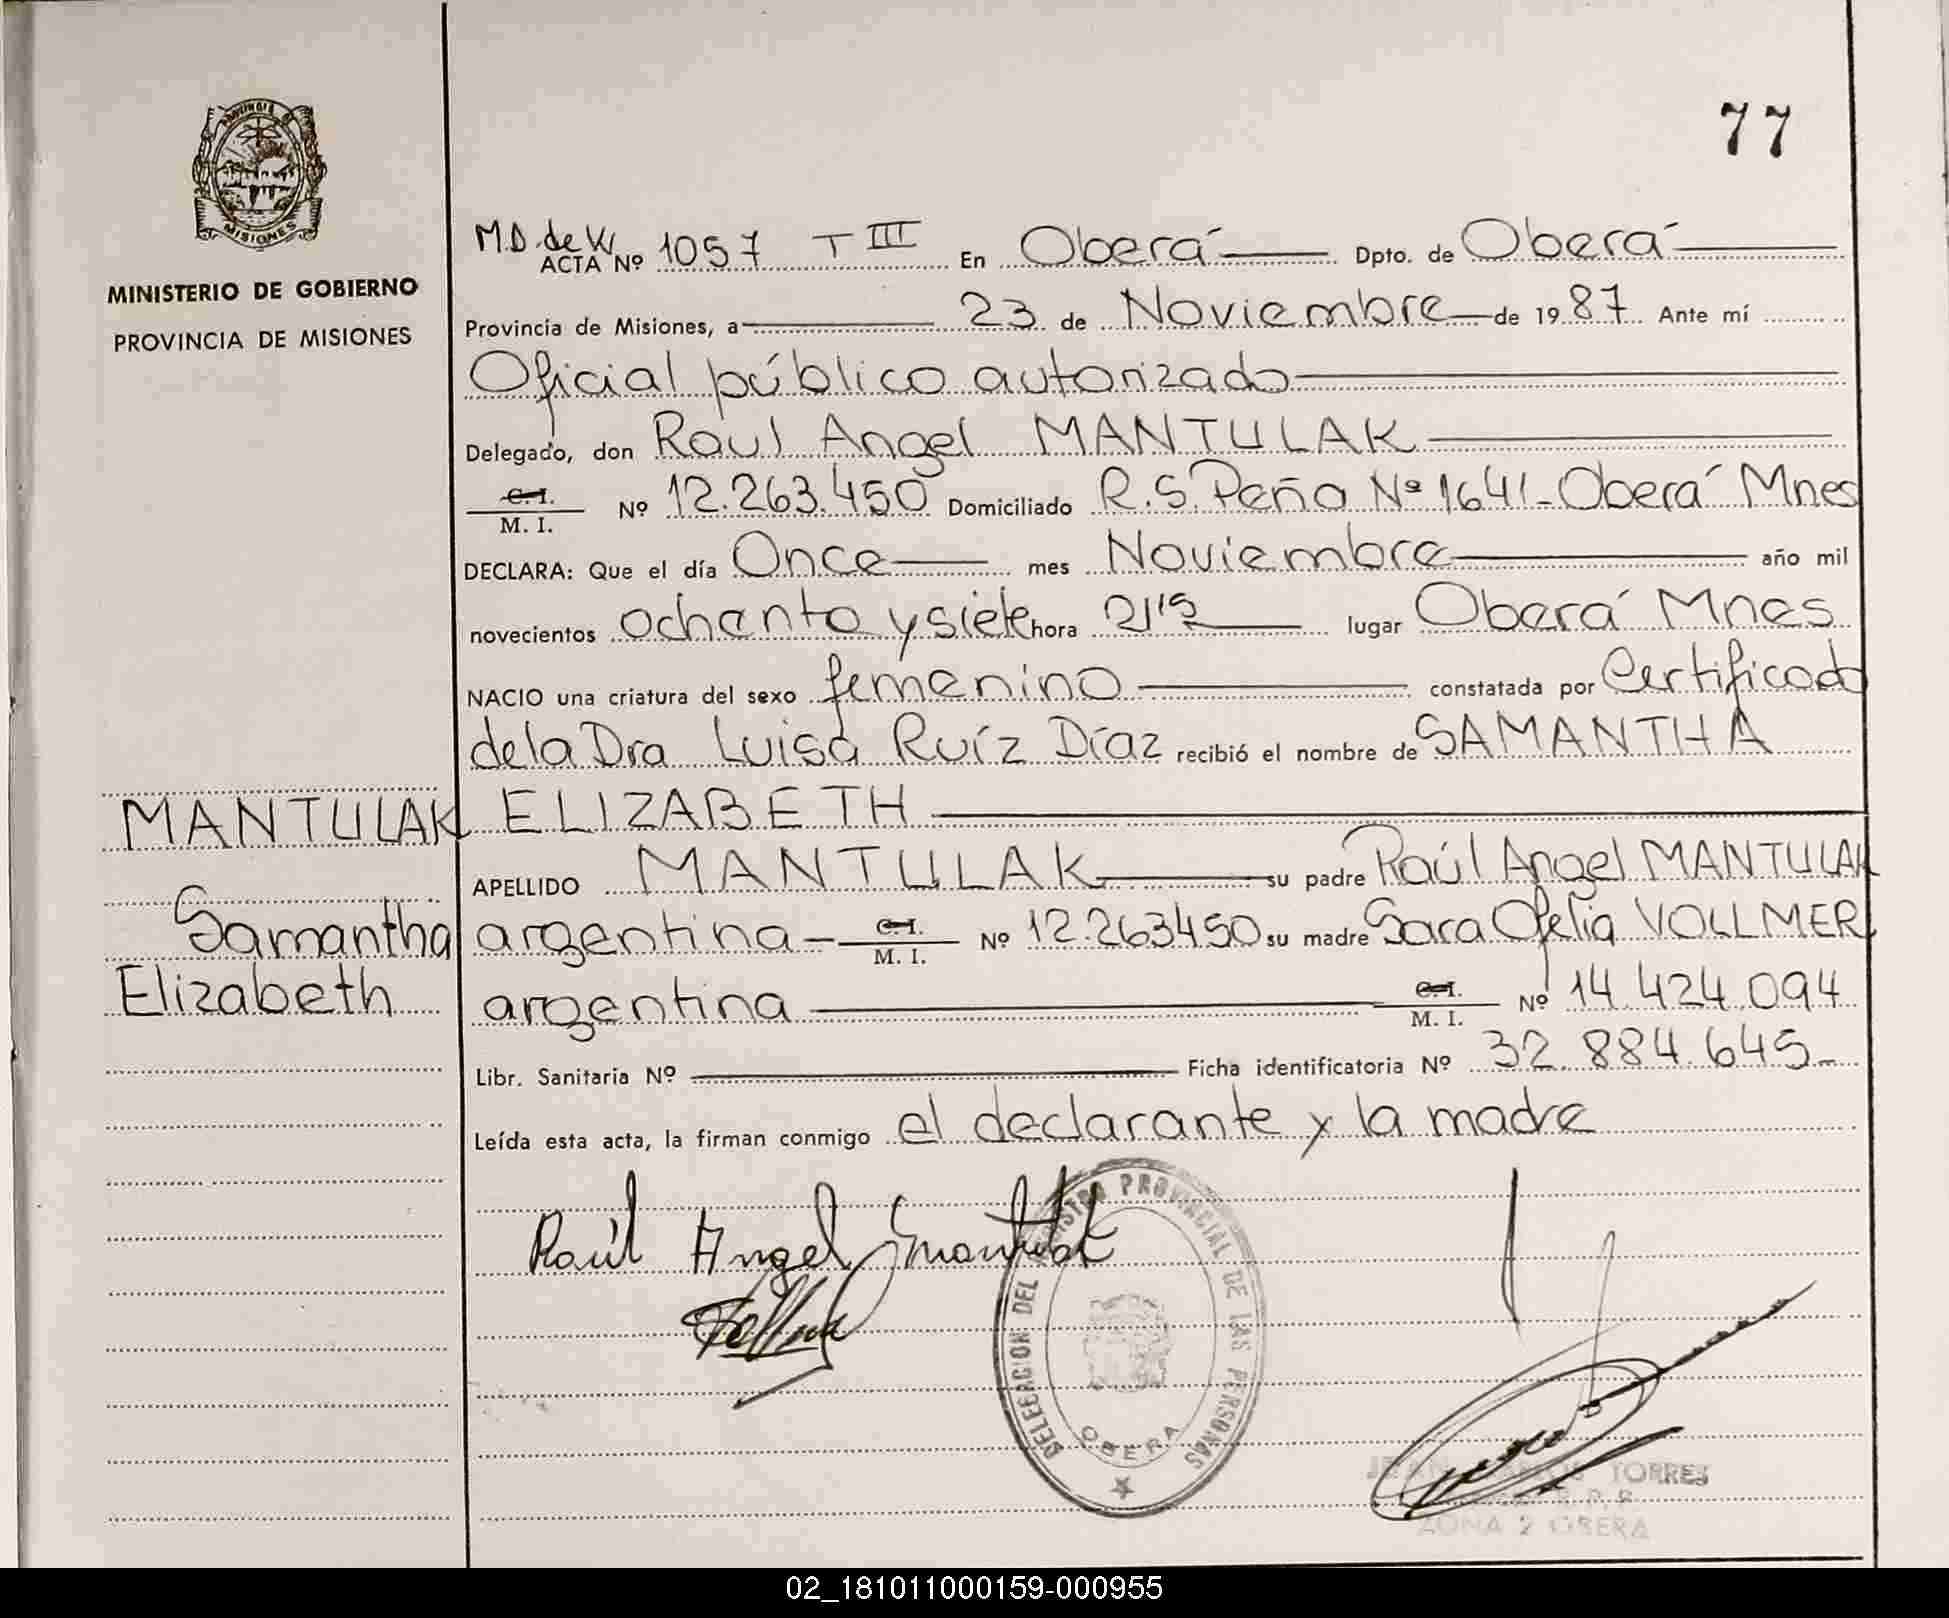 77
PROVINCIA D
MISIONES
MINISTERIO DE GOBIERNO
PROVINCIA DE MISIONES
M.D. de W
ACTA Nº 1057 T III En Oberá Dpto. de Oberá
Provincia de Misiones, a 23 de Noviembre de 1987 Ante mí
Oficial público autorizado
Delegado, don Raul Angel MANTULAK
C. I.
M. I. Nº 12.263.450 Domiciliado R.S. Peña Nº 1641-Oberá Mnes
DECLARA: Que el día Once mes Noviembre año mil
novecientos ochenta y siete hora lugar Oberá Mnes
NACIO una criatura del sexo femenino constatada por Certificado
de la Dra Luisa Ruíz Díaz recibió el nombre de SAMANTHA
ELIZABETH
MANTULAK
Samantha
Elizabeth
APELLIDO MANTULAK su padre Raúl Angel MANTULAK
argentina - C. I. M. I. Nº 12.263450 su madre Sara Ofelia VOLLMER
argentina C. I. M. I. Nº 14.424.094
Libr. Sanitaria Nº Ficha identificatoria Nº 32.884.645-
Leída esta acta, la firman conmigo el declarante y la madre
Raúl Angel Mantulak
DELEGACION DEL REGISTRO PROVINCIAL DE LAS PERSONAS
OBERA
TORRES
ZONA 2 OBERA
02_181011000159-000955